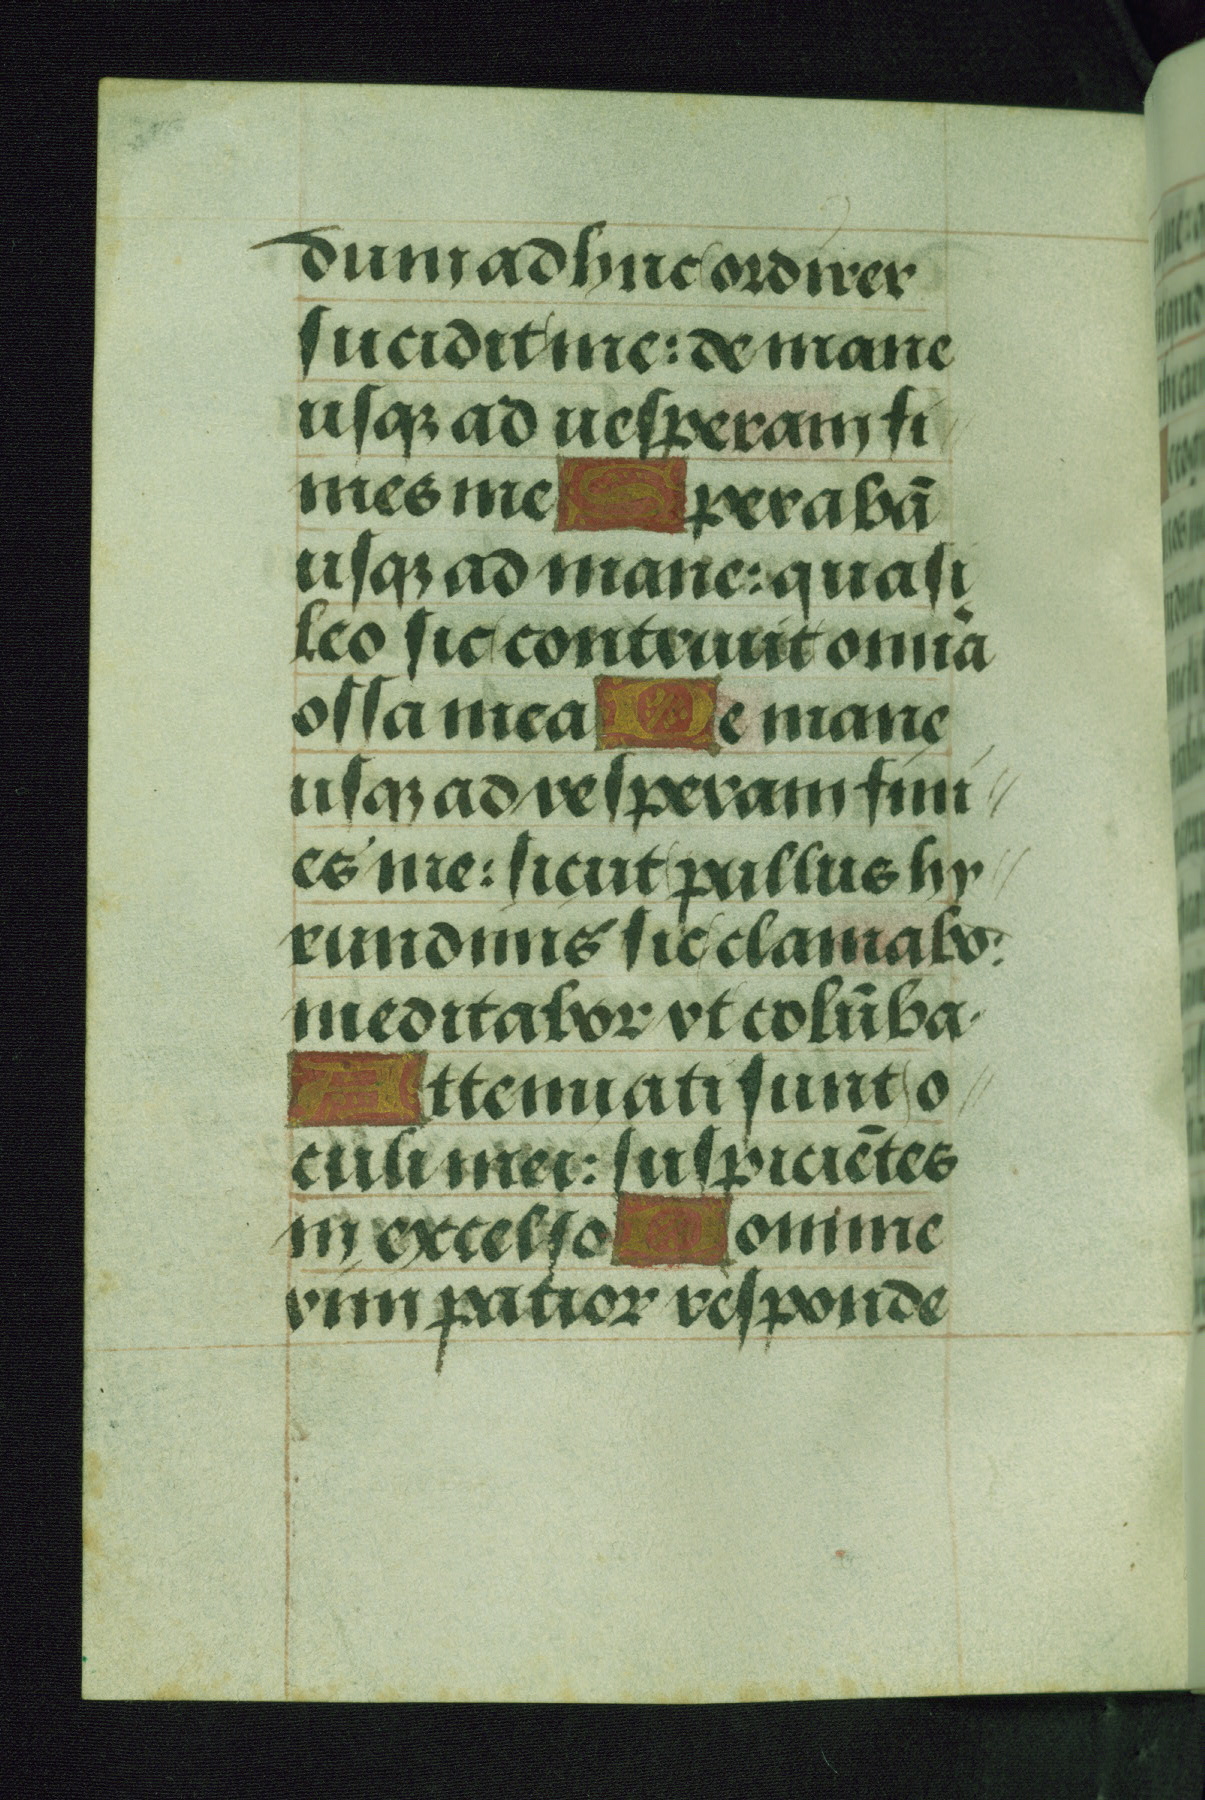 dum adhuc ordirer
sucidit me: de mane
usqꝫ ad uesperam fi
nies me Sperabā
usqꝫ ad mane: quasi
leo sic contriuit omīa
ossa mea De mane
usqꝫ ad vesperam fini
es me: sicut pullus hy
rundinis sic clamabo:
meditabor vt colūba.
Attenuati sunt o
culi mei: suspiciētes
in excelso Domine
vim patior responde